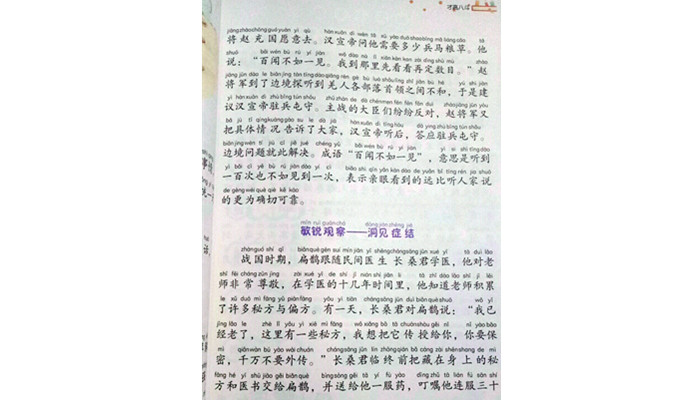 才高八斗
jiāng zhào chōng guó yuàn yì qù hàn xuān dì wèn tā xū yào duō shao bīng mǎ liáng cǎo tā
将赵充国愿意去。汉宣帝问他需要多少兵马粮草。他
shuō bǎi wén bù rú yí jiàn wǒ dào nà lǐ xiān kàn kan zài dìng shù mù zhào
说：“百闻不如一见。我到那里先看看再定数目。”赵
jiāng jūn dào le biān jìng tàn tīng dào qiāng rén gè bù luò shǒu lǐng zhī jiān bù hé yú shì jiàn
将军到了边境探听到羌人各部落首领之间不和，于是建
yì hàn xuān dì zhù bīng tún shǒu zhǔ zhàn de dà chén men fēn fēn fǎn duì zhào jiāng jūn yòu
议汉宣帝驻兵屯守。主战的大臣们纷纷反对，赵将军又
bǎ jù tǐ qíng kuàng gào su le dà jiā hàn xuān dì tīng hòu dā ying zhù bīng tún shǒu
把具体情况告诉了大家，汉宣帝听后，答应驻兵屯守。
biān jìng wèn tí jiù cǐ jiě jué chéng yǔ bǎi wén bù rú yí jiàn yì si shì tīng dào
边境问题就此解决。成语“百闻不如一见”，意思是听到
yì bǎi cì yě bù rú jiàn dào yí cì biǎo shì qīn yǎn kàn dào de yuǎn bǐ tīng rén jia shuō
一百次也不如见到一次，表示亲眼看到的远比听人家说
de gèng wéi què qiè kě kào
的更为确切可靠。
mǐn ruì guān chá dòng jiàn zhēng jié
敏锐观察——洞见症结
zhàn guó shí qī biǎn què gēn suí mín jiān yī shēng cháng sāng jūn xué yī tā duì lǎo
战国时期，扁鹊跟随民间医生长桑君学医，他对老
shī fēi cháng zūn jìng zài xué yī de shí jǐ nián shí jiān lǐ tā zhī dào lǎo shī jī lěi
师非常尊敬，在学医的十几年时间里，他知道老师积累
le xǔ duō mì fāng yǔ piān fāng yǒu yì tiān cháng sāng jūn duì biǎn què shuō wǒ yǐ
了许多秘方与偏方。有一天，长桑君对扁鹊说：“我已
jīng lǎo le zhè lǐ yǒu yì xiē mì fāng wǒ xiǎng bǎ tā chuán shòu gěi nǐ nǐ yào bǎo
经老了，这里有一些秘方，我想把它传授给你，你要保
mì qiān wàn bú yào wài chuán cháng sāng jūn lín zhōng qián bǎ cáng zài shēn shang de mì
密，千万不要外传。”长桑君临终前把藏在身上的秘
fāng hé yī shū jiāo gěi biǎn què bìng sòng gěi tā yì fú yào dīng zhǔ tā lián fú sān shí
方和医书交给扁鹊，并送给他一服药，叮嘱他连服三十